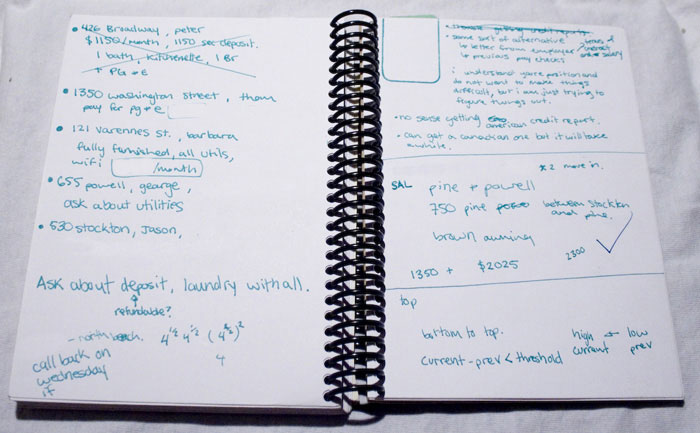 • 426 Broadway, peter
$1150/month, 1150 sec deposit.
1 bath, kitchenette, 1 Br
+ PG & E
• 1350 washington street, thom
pay for pg & e
• 121 varennes st., barbara
fully furnished, all utils,
wifi /month
• 655 powell, gearge,
ask about utilities
• 530 stockton, Jason,
Ask about deposit, laundry with all.
refundable?
- north beach. 4^1/2 4^1/2 (4^1/2)^2
4
call back on
wednesday
if
getting credit reports
• some sort of alternative
↳ letter from employer / contract salary
↳ previous pay checks
i understand you're position and
do not want to make things
difficult, but i am just trying to
figure things out.
• no sense getting american credit report.
• can get a canadian one but it will take
awhile.
x2 move in.
SAL pine + powell
750 pine between Stockton
and pine.
brown awning
2300
1350 + $2025
top
bottom to top. high low
current prev
current - prev < threshold